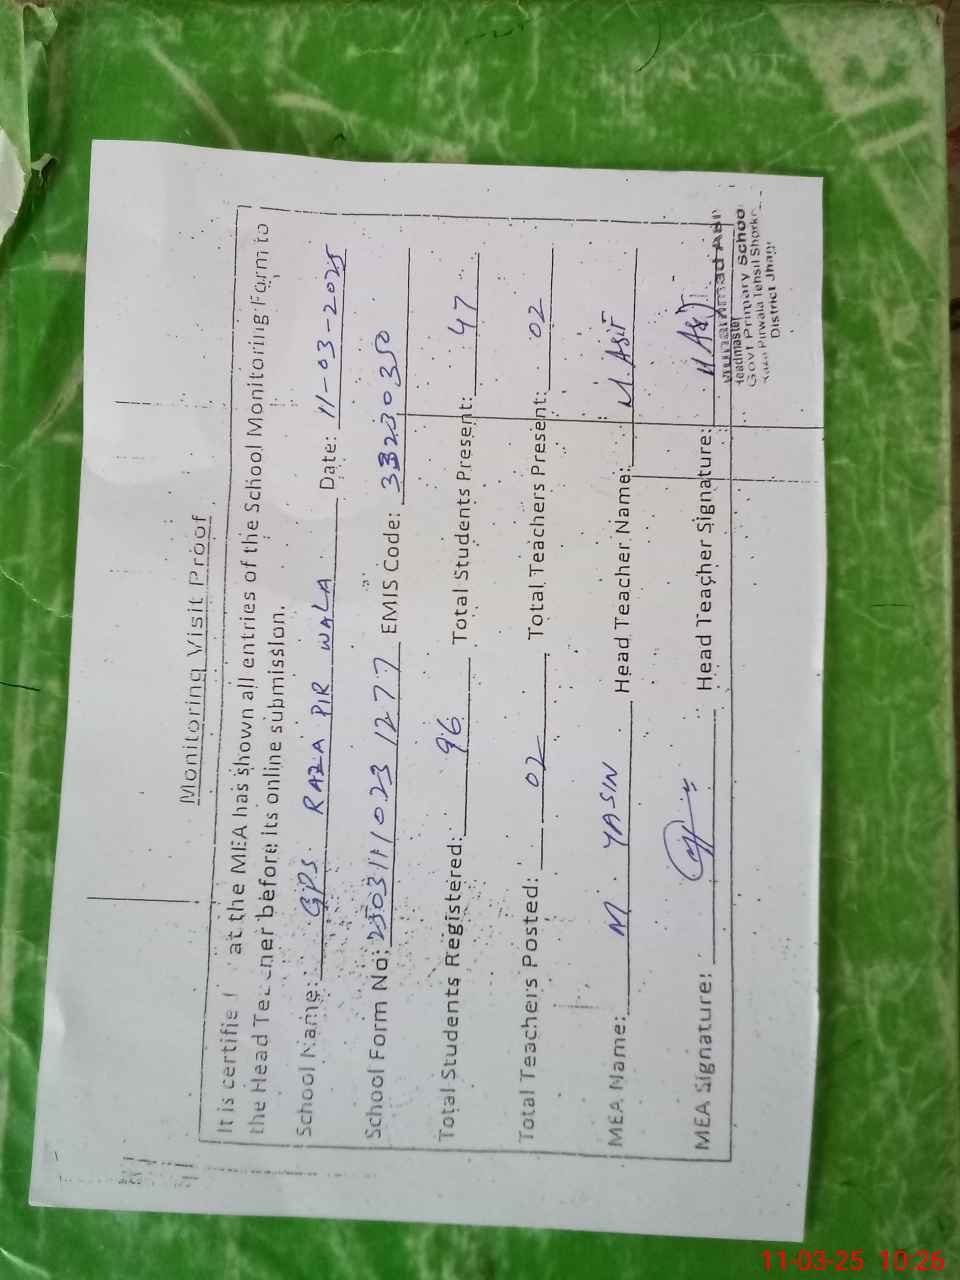 Monitoring Visit Proof
It is certifie at the MEA has shown all entries of the School Monitoring Form to
the Head Te cner before its online submission.
School Name: GPS RAZA PIR WALA Date: 11-03-2025
School Form No: EMIS Code: 33230350
Total Students Registered: 96 Total Students Present: 47
Total Teachers Posted: 02 Total Teachers Present: 02
MEA Name: M YASIN Head Teacher Name: M ASIF
MEA Signature: Head Teacher Signature: M ASIF
Headmaster
Govt Primary School
Pirwala Tehsil Shorko
District Jhang
11-03-25 10:26